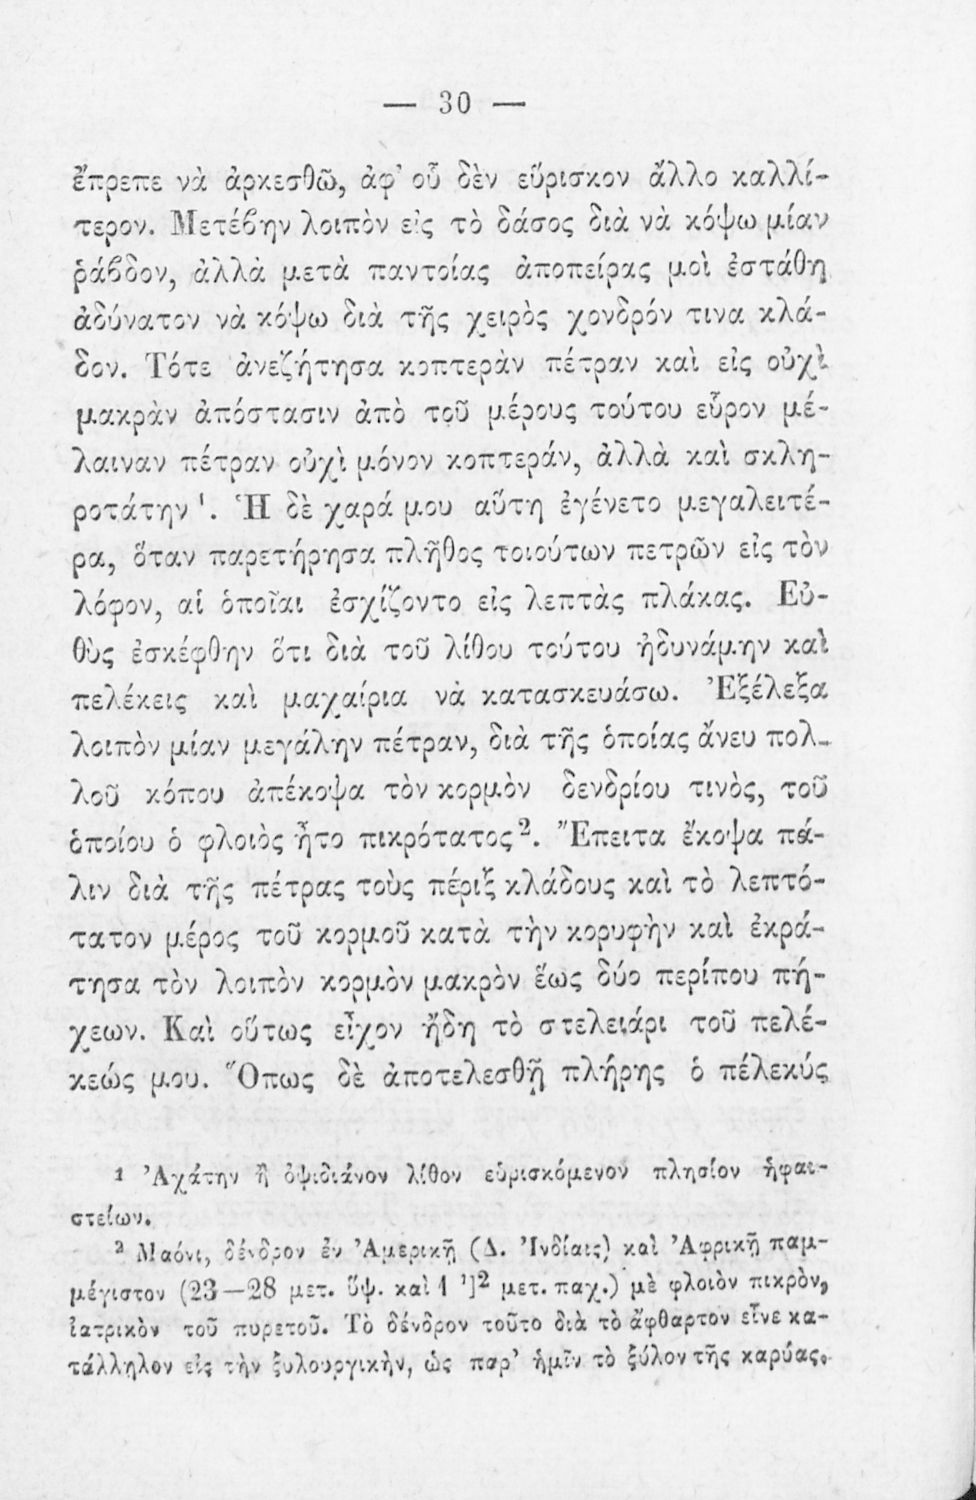 — 30 —
ἔπρεπε νὰ ἀρκεσθῶ, ἀφ’ οὗ δὲν εὕρισκον ἄλλο καλλί-
τερον. Μετέβην λοιπὸν εἰς τὸ δάσος διὰ νὰ κόψω μίαν
ῥάβδον, ἀλλὰ μετὰ παντοίας ἀποπείρας μοὶ ἐστάθη
ἀδύνατον νὰ κόψω διὰ τῆς χειρὸς χονδρόν τινα κλά-
δον. Τότε ἀνεζήτησα κοπτερὰν πέτραν καὶ εἰς οὐχὶ
μακρὰν ἀπόστασιν ἀπὸ τοῦ μέρους τούτου εὗρον μέ-
λαιναν πέτραν οὐχὶ μόνον κοπτεράν, ἀλλὰ καὶ σκλη-
ροτάτην ¹. Ἡ δὲ χαρά μου αὕτη ἐγένετο μεγαλειτέ-
ρα, ὅταν παρετήρησα πλῆθος τοιούτων πετρῶν εἰς τὸν
λόφον, αἱ ὁποῖαι ἐσχίζοντο εἰς λεπτὰς πλάκας. Εὐ-
θὺς ἐσκέφθην ὅτι διὰ τοῦ λίθου τούτου ἠδυνάμην καὶ
πελέκεις καὶ μαχαίρια νὰ κατασκευάσω. Ἐξέλεξα
λοιπὸν μίαν μεγάλην πέτραν, διὰ τῆς ὁποίας ἄνευ πολ-
λοῦ κόπου ἀπέκοψα τὸν κορμὸν δενδρίου τινὸς, τοῦ
ὁποίου ὁ φλοιὸς ἦτο πικρότατος ². Ἔπειτα ἔκοψα πά-
λιν διὰ τῆς πέτρας τοὺς πέριξ κλάδους καὶ τὸ λεπτό-
τατον μέρος τοῦ κορμοῦ κατὰ τὴν κορυφὴν καὶ ἐκρά-
τησα τὸν λοιπὸν κορμὸν μακρὸν ἕως δύο περίπου πή-
χεων. Καὶ οὕτως εἶχον ἤδη τὸ στελειάρι τοῦ πελέ-
κεώς μου. Ὅπως δὲ ἀποτελεσθῇ πλήρης ὁ πέλεκύς
1 Ἀχάτην ἢ ὀψιδιάνον λίθον εὑρισκόμενον πλησίον ἡφαι-
στείων.
2 Μαόνι, δένδρον ἐν Ἀμερικῇ (Δ. Ἰνδίαις) καὶ Ἀφρικῇ παμ-
μέγιστον (23—28 μετ. ὕψ. καὶ 1 ¹]² μετ. παχ.) μὲ φλοιὸν πικρὸν,
ἰατρικὸν τοῦ πυρετοῦ. Τὸ δένδρον τοῦτο διὰ τὸ ἄφθαρτον εἶνε κα-
τάλληλον εἰς τὴν ξυλουργικὴν, ὡς παρ’ ἡμῖν τὸ ξύλον τῆς καρύας.